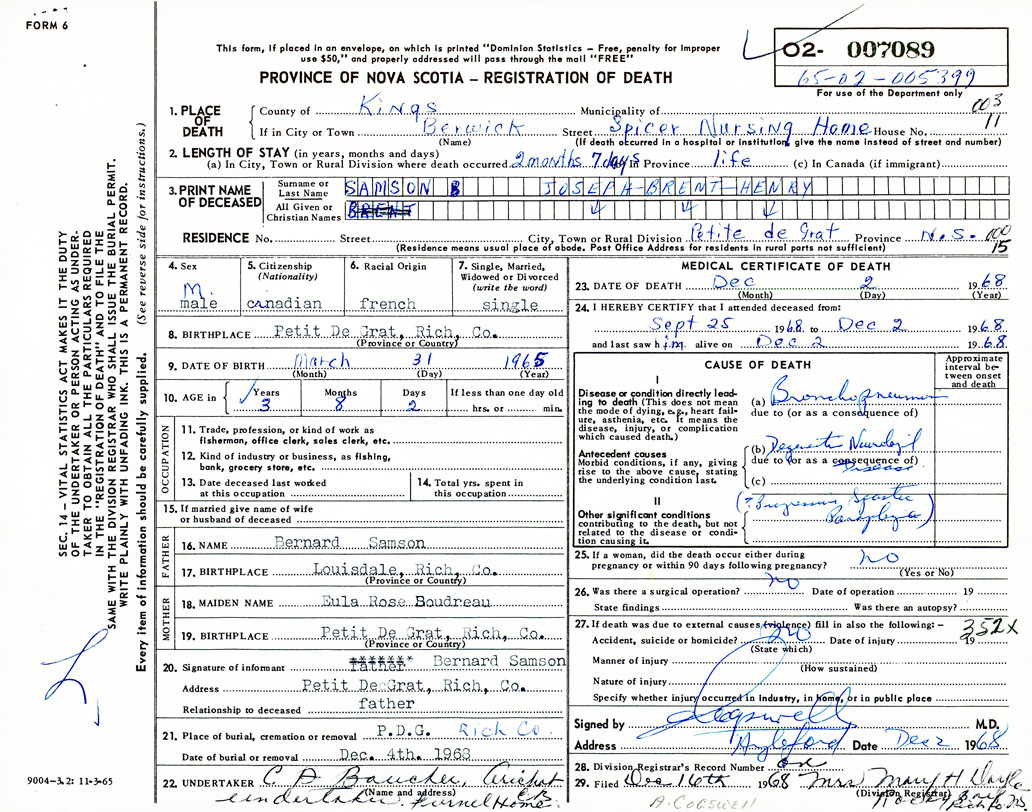 FORM 6
This form, if placed in an envelope, on which is printed "Dominion Statistics – Free, penalty for improper
use $50," and properly addressed will pass through the mail "FREE"
PROVINCE OF NOVA SCOTIA – REGISTRATION OF DEATH
O2- 007089
65-02-005399
For use of the Department only
003
11
1. PLACE OF DEATH
County of Kings Municipality of
If in City or Town Berwick Street Spicer Nursing Home House No.
(Name) (If death occurred in a hospital or institution, give the name instead of street and number)
2. LENGTH OF STAY (in years, months and days)
(a) In City, Town or Rural Division where death occurred 2 months 7 days In Province life (c) In Canada (if immigrant)
3. PRINT NAME OF DECEASED
Surname or Last Name SAMSON JOSEPH-BRENT-HENRY
All Given or Christian Names BRENT
RESIDENCE No. Street City, Town or Rural Division Petite de Grat Province N.S. 100
15
(Residence means usual place of abode. Post Office Address for residents in rural parts not sufficient)
4. Sex M. male
5. Citizenship (Nationality) canadian
6. Racial Origin french
7. Single, Married, Widowed or Divorced (write the word) single
8. BIRTHPLACE Petit De Grat, Rich, Co.
(Province or Country)
9. DATE OF BIRTH March 31 1965
(Month) (Day) (Year)
10. AGE in Years 3 Months 8 Days 2 If less than one day old
hrs. or min.
OCCUPATION
11. Trade, profession, or kind of work as
fisherman, office clerk, sales clerk, etc.
12. Kind of industry or business, as fishing,
bank, grocery store, etc.
13. Date deceased last worked
at this occupation
14. Total yrs. spent in
this occupation
15. If married give name of wife
or husband of deceased
FATHER
16. NAME Bernard Samson
17. BIRTHPLACE Louisdale, Rich, Co.
(Province or Country)
MOTHER
18. MAIDEN NAME Eula Rose Boudreau
19. BIRTHPLACE Petit De Grat, Rich, Co.
(Province or Country)
20. Signature of informant father Bernard Samson
Address Petit De Grat, Rich, Co.
Relationship to deceased father
21. Place of burial, cremation or removal P.D.G. Rich Co.
Date of burial or removal Dec. 4th. 1968
22. UNDERTAKER C A Boucher, Arichat
(Name and address)
undertaker. Funeral Home. C.B.
MEDICAL CERTIFICATE OF DEATH
23. DATE OF DEATH Dec 2 1968
(Month) (Day) (Year)
24. I HEREBY CERTIFY that I attended deceased from:
Sept 25 1968 to Dec 2 1968
and last saw him alive on Dec 2 1968
CAUSE OF DEATH
Approximate interval between onset and death
I
Disease or condition directly leading to death (This does not mean the mode of dying, e.g., heart failure, asthenia, etc. It means the disease, injury, or complication which caused death.)
(a) Bronchopneumon
due to (or as a consequence of)
Antecedent causes
Morbid conditions, if any, giving rise to the above cause, stating the underlying condition last.
(b)
due to (or as a consequence of)
Disease
(c)
II
Other significant conditions
contributing to the death, but not related to the disease or condition causing it.
(? Progressive Spastic
Paraplegia)
25. If a woman, did the death occur either during
pregnancy or within 90 days following pregnancy? no
(Yes or No)
26. Was there a surgical operation? no Date of operation 19
State findings Was there an autopsy?
27. If death was due to external causes (violence) fill in also the following: – 352X
Accident, suicide or homicide? no Date of injury 19
(State which)
Manner of injury
(How sustained)
Nature of injury
Specify whether injury occurred in Industry, in Home, or in public place
Signed by Cogswell M.D.
Address Date Dec 2 1968
28. Division Registrar's Record Number
29. Filed Dec. 16th 1968 Mrs Mary H
(Division Registrar)
A. COGSWELL
9004-3.2: 11-3-65
SEC. 14 – VITAL STATISTICS ACT MAKES IT THE DUTY
OF THE UNDERTAKER OR PERSON ACTING AS UNDER-
TAKER TO OBTAIN ALL THE PARTICULARS REQUIRED
IN THE "REGISTRATION OF DEATH" AND TO FILE THE
SAME WITH THE DIVISION REGISTRAR WHO SHALL ISSUE THE BURIAL PERMIT.
WRITE PLAINLY WITH UNFADING INK. THIS IS A PERMANENT RECORD.
Every item of information should be carefully supplied. (See reverse side for instructions.)